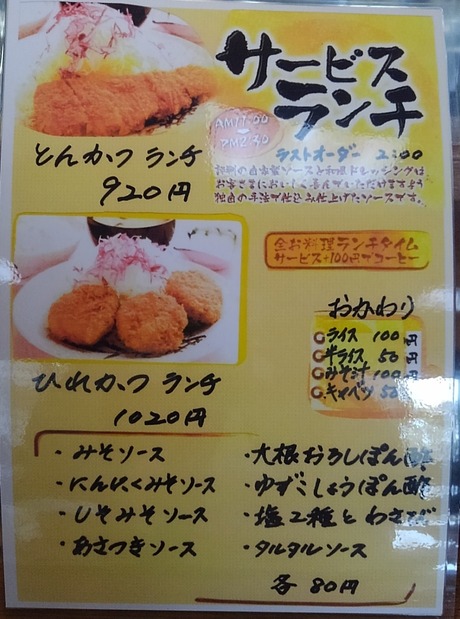 サービス
ランチ
AM11:30
PM2:30
ラストオーダー 2:00
特製の自家製ソースと和風ドレッシングは
お客さまにおいしく喜んでいただけますよう
独自の手法で仕込み仕上げたソースです。
とんかつ ランチ
920円
全お料理ランチタイム
サービス+100円でコーヒー
おかわり
ライス 100円
半ライス 50円
みそ汁 100円
キャベツ 50
ひれかつ ランチ
1020円
・みそソース
・にんにくみそソース
・しそみそソース
・あさつきソース
・大根おろしぽん酢
・ゆずこしょうぽん酢
・塩2種とわさび
・タルタルソース
各 80円